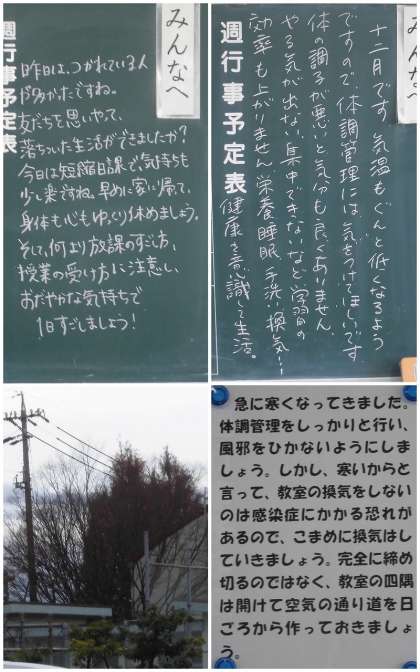 みんなへ
週行事予定表
昨日は、つかれている人
が多かったですね。
友だちを思いやって、
落ちついた生活ができましたか?
今日は短縮日課で、気持ちも
少し楽ですね。早めに家に帰って、
身体も心もゆっくり休めましょう。
そして、何より放課のすごし方、
授業の受け方に注意し、
おだやかな気持ちで
1日すごしましょう!
みんなへ
週行事予定表
十二月です。気温もぐんと低くなるよう
ですので、体調管理には気をつけてほしいです。
体の調子が悪いと気分も良くありません。
やる気が出ない、集中できないなど学習の
効率も上がりません。栄養、睡眠、手洗い、換気…
健康を意識して生活。
急に寒くなってきました。
体調管理をしっかりと行い、
風邪をひかないようにしま
しょう。しかし、寒いからと
言って、教室の換気をしない
のは感染症にかかる恐れが
あるので、こまめに換気はし
ていきましょう。完全に締め
切るのではなく、教室の四隅
は開けて空気の通り道を日
ごろから作っておきましょ
う。